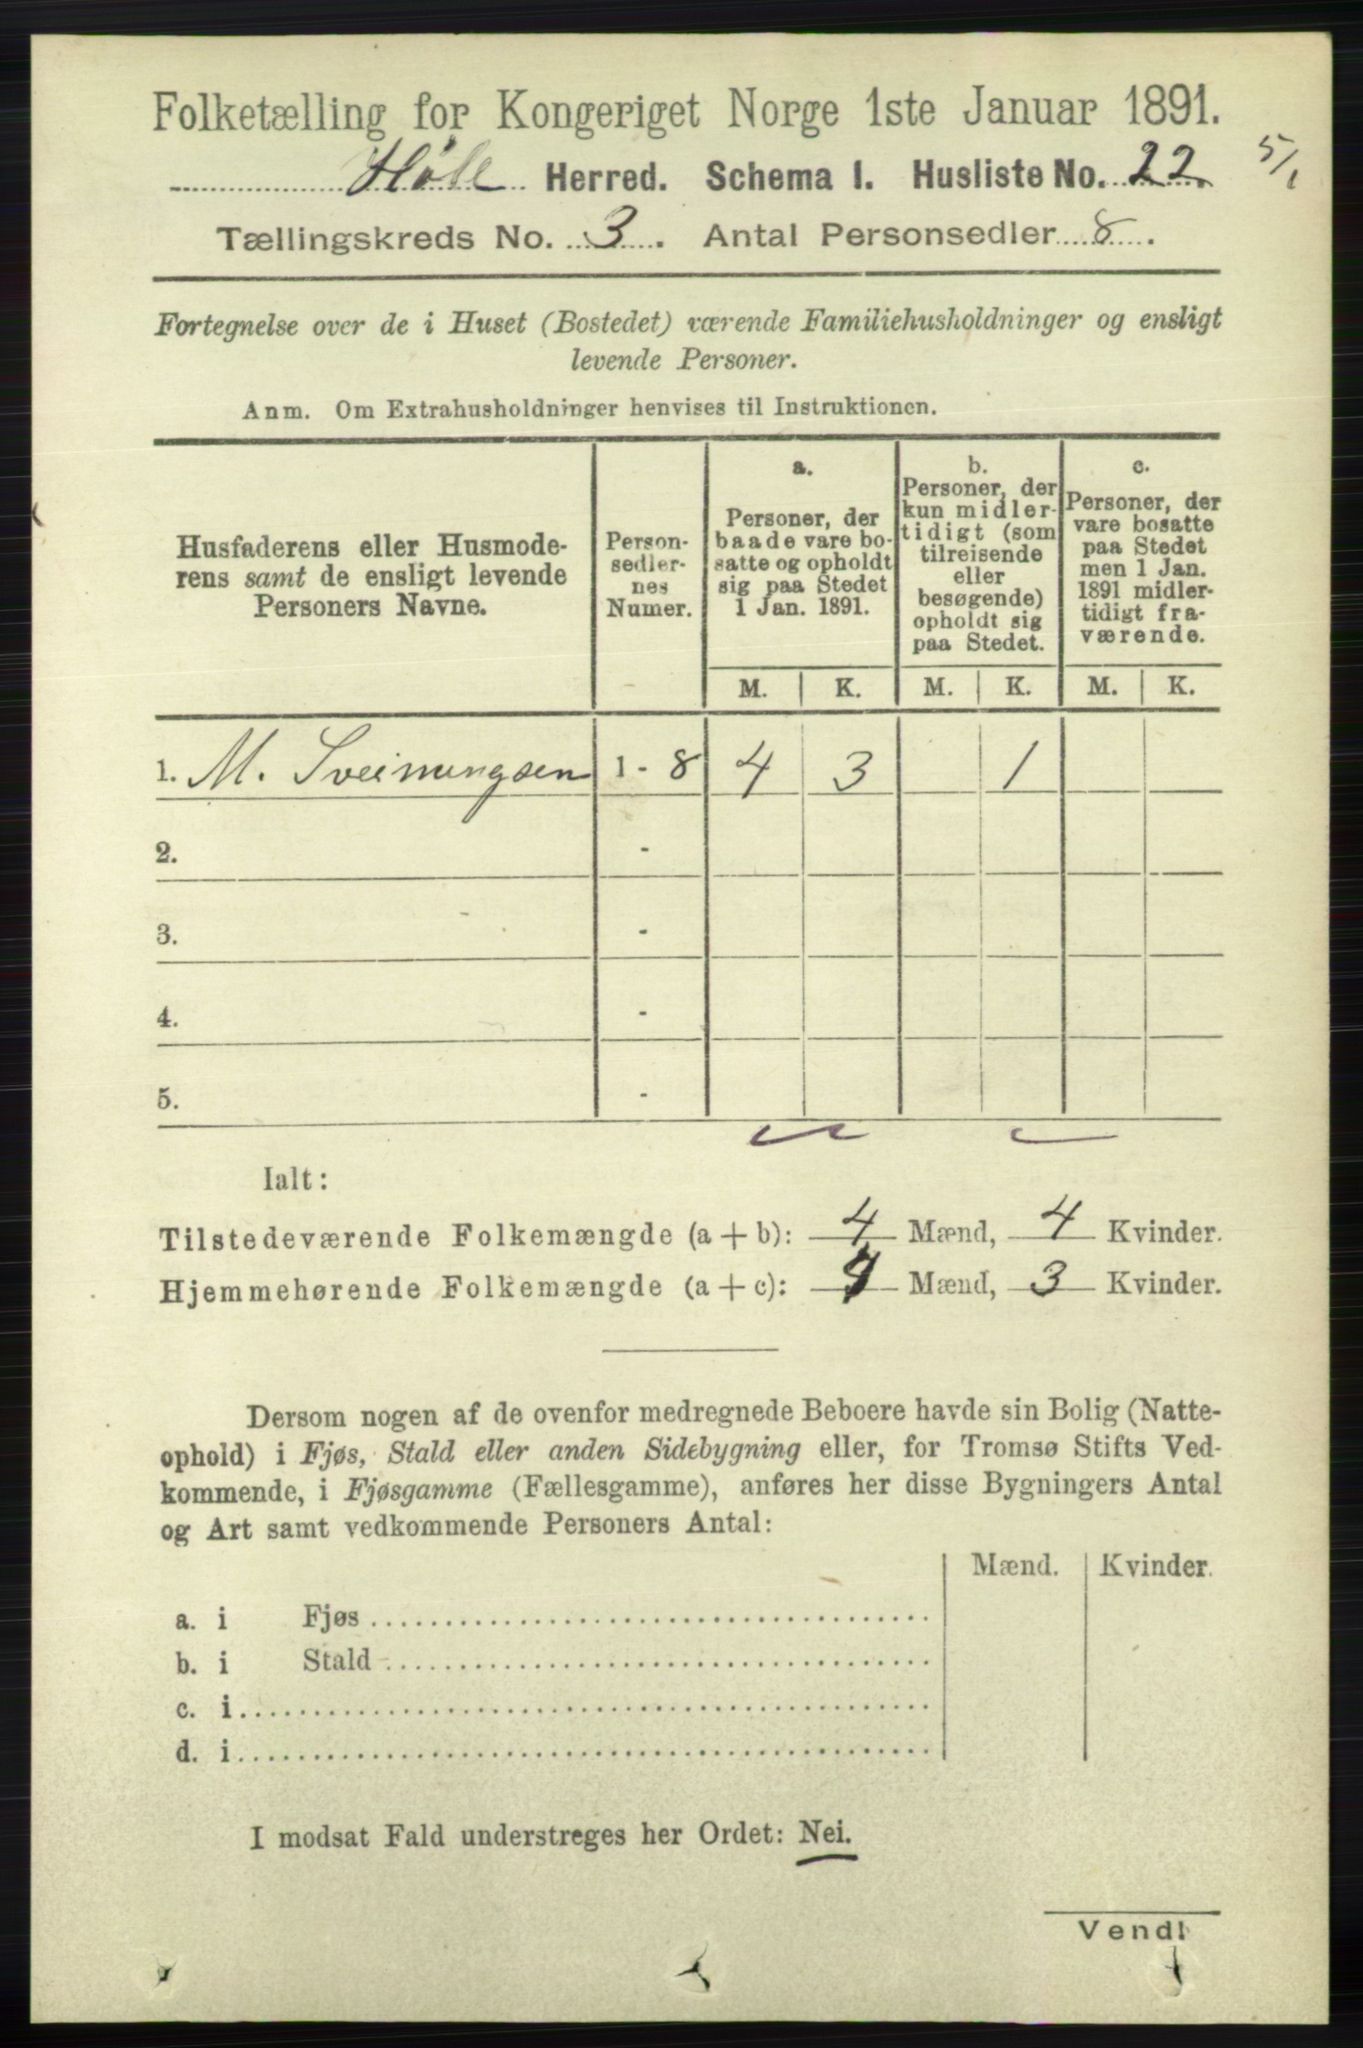 Folketælling for Kongeriget Norge 1ste Januar 1891.
Høle Herred. Schema I. Husliste No. 22. 5/1
Tællingskreds No. 3. Antal Personsedler 8.
Fortegnelse over de i Huset (Bostedet) værende Familiehusholdninger og ensligt
levende Personer.
Anm. Om Extrahusholdninger henvises til Instruktionen.
Husfaderens eller Husmode-
rens samt de ensligt levende
Personers Navne.
Person-
sedler-
nes
Numer.
a.
Personer, der
baade vare bo-
satte og opholdt
sig paa Stedet
1 Jan. 1891.
b.
Personer, der
kun midler-
tidigt (som
tilreisende
eller
besøgende)
opholdt sig
paa Stedet.
c.
Personer, der
vare bosatte
paa Stedet
men 1 Jan.
1891 midler-
tidigt fra-
værende.
M. K. M. K. M. K.
1. M. Sveinungsen 1 - 8 4 3 1
2. -
3. -
4. -
5. -
Ialt:
Tilstedeværende Folkemængde (a + b): 4 Mænd, 4 Kvinder.
Hjemmehørende Folkemængde (a + c): 4 Mænd, 3 Kvinder.
Dersom nogen af de ovenfor medregnede Beboere havde sin Bolig (Natte-
ophold) i Fjøs, Stald eller anden Sidebygning eller, for Tromsø Stifts Ved-
kommende, i Fjøsgamme (Fællesgamme), anføres her disse Bygningers Antal
og Art samt vedkommende Personers Antal:
Mænd. Kvinder.
a. i Fjøs
b. i Stald
c. i
d. i
I modsat Fald understreges her Ordet: Nei.
Vend!